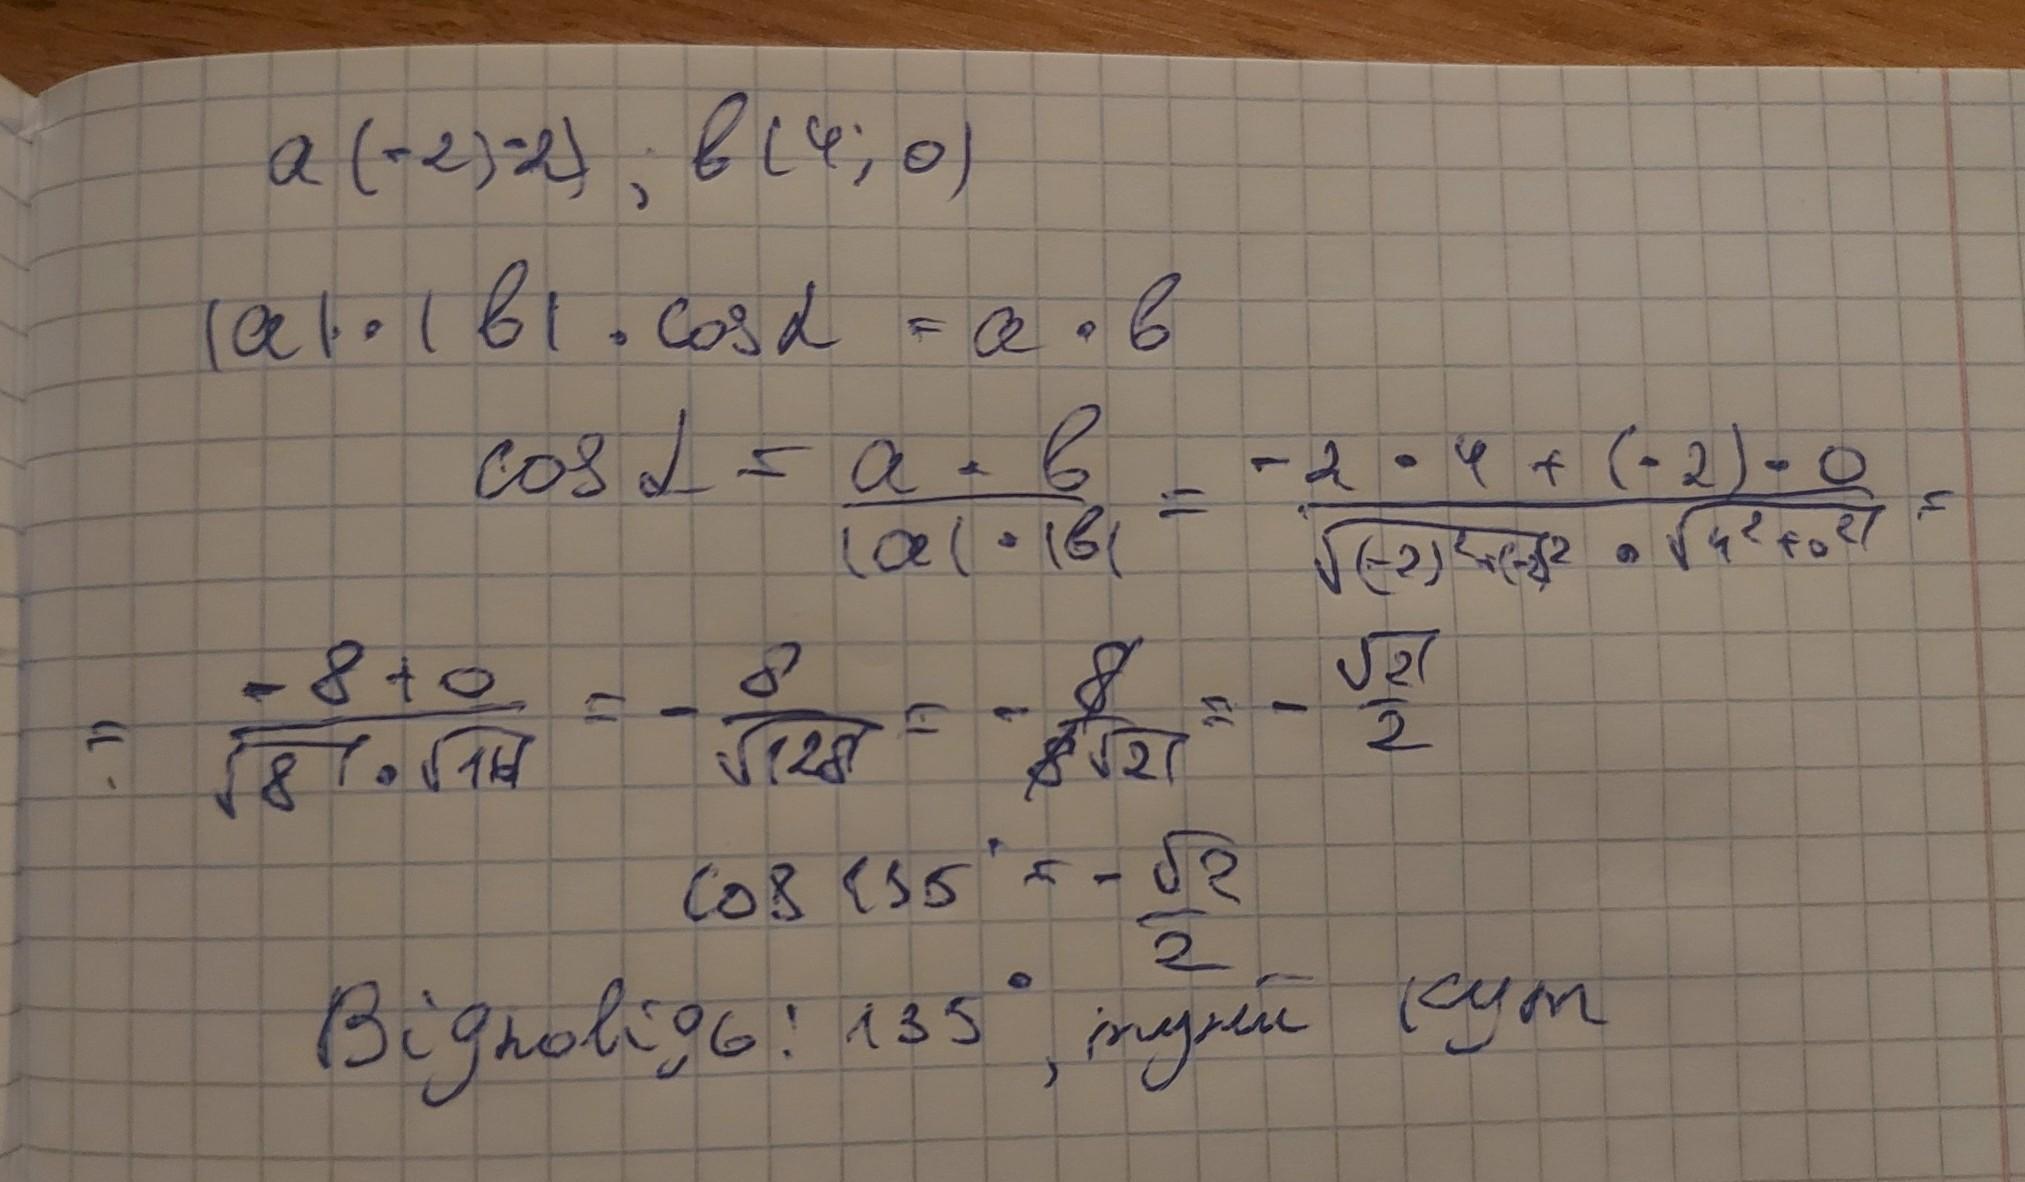 a(-2;-2); b(4;0)
|a|·|b|·cosα = a·b
cosα = a·b / |a|·|b| = -2·4+(-2)·0 / √(-2)²+(-2)² · √4²+0² =
= -8+0 / √8·√16 = - 8 / √128 = - 8 / 8√2 = - √2 / 2
cos 135° = - √2 / 2
Відповідь: 135°, тупий кут